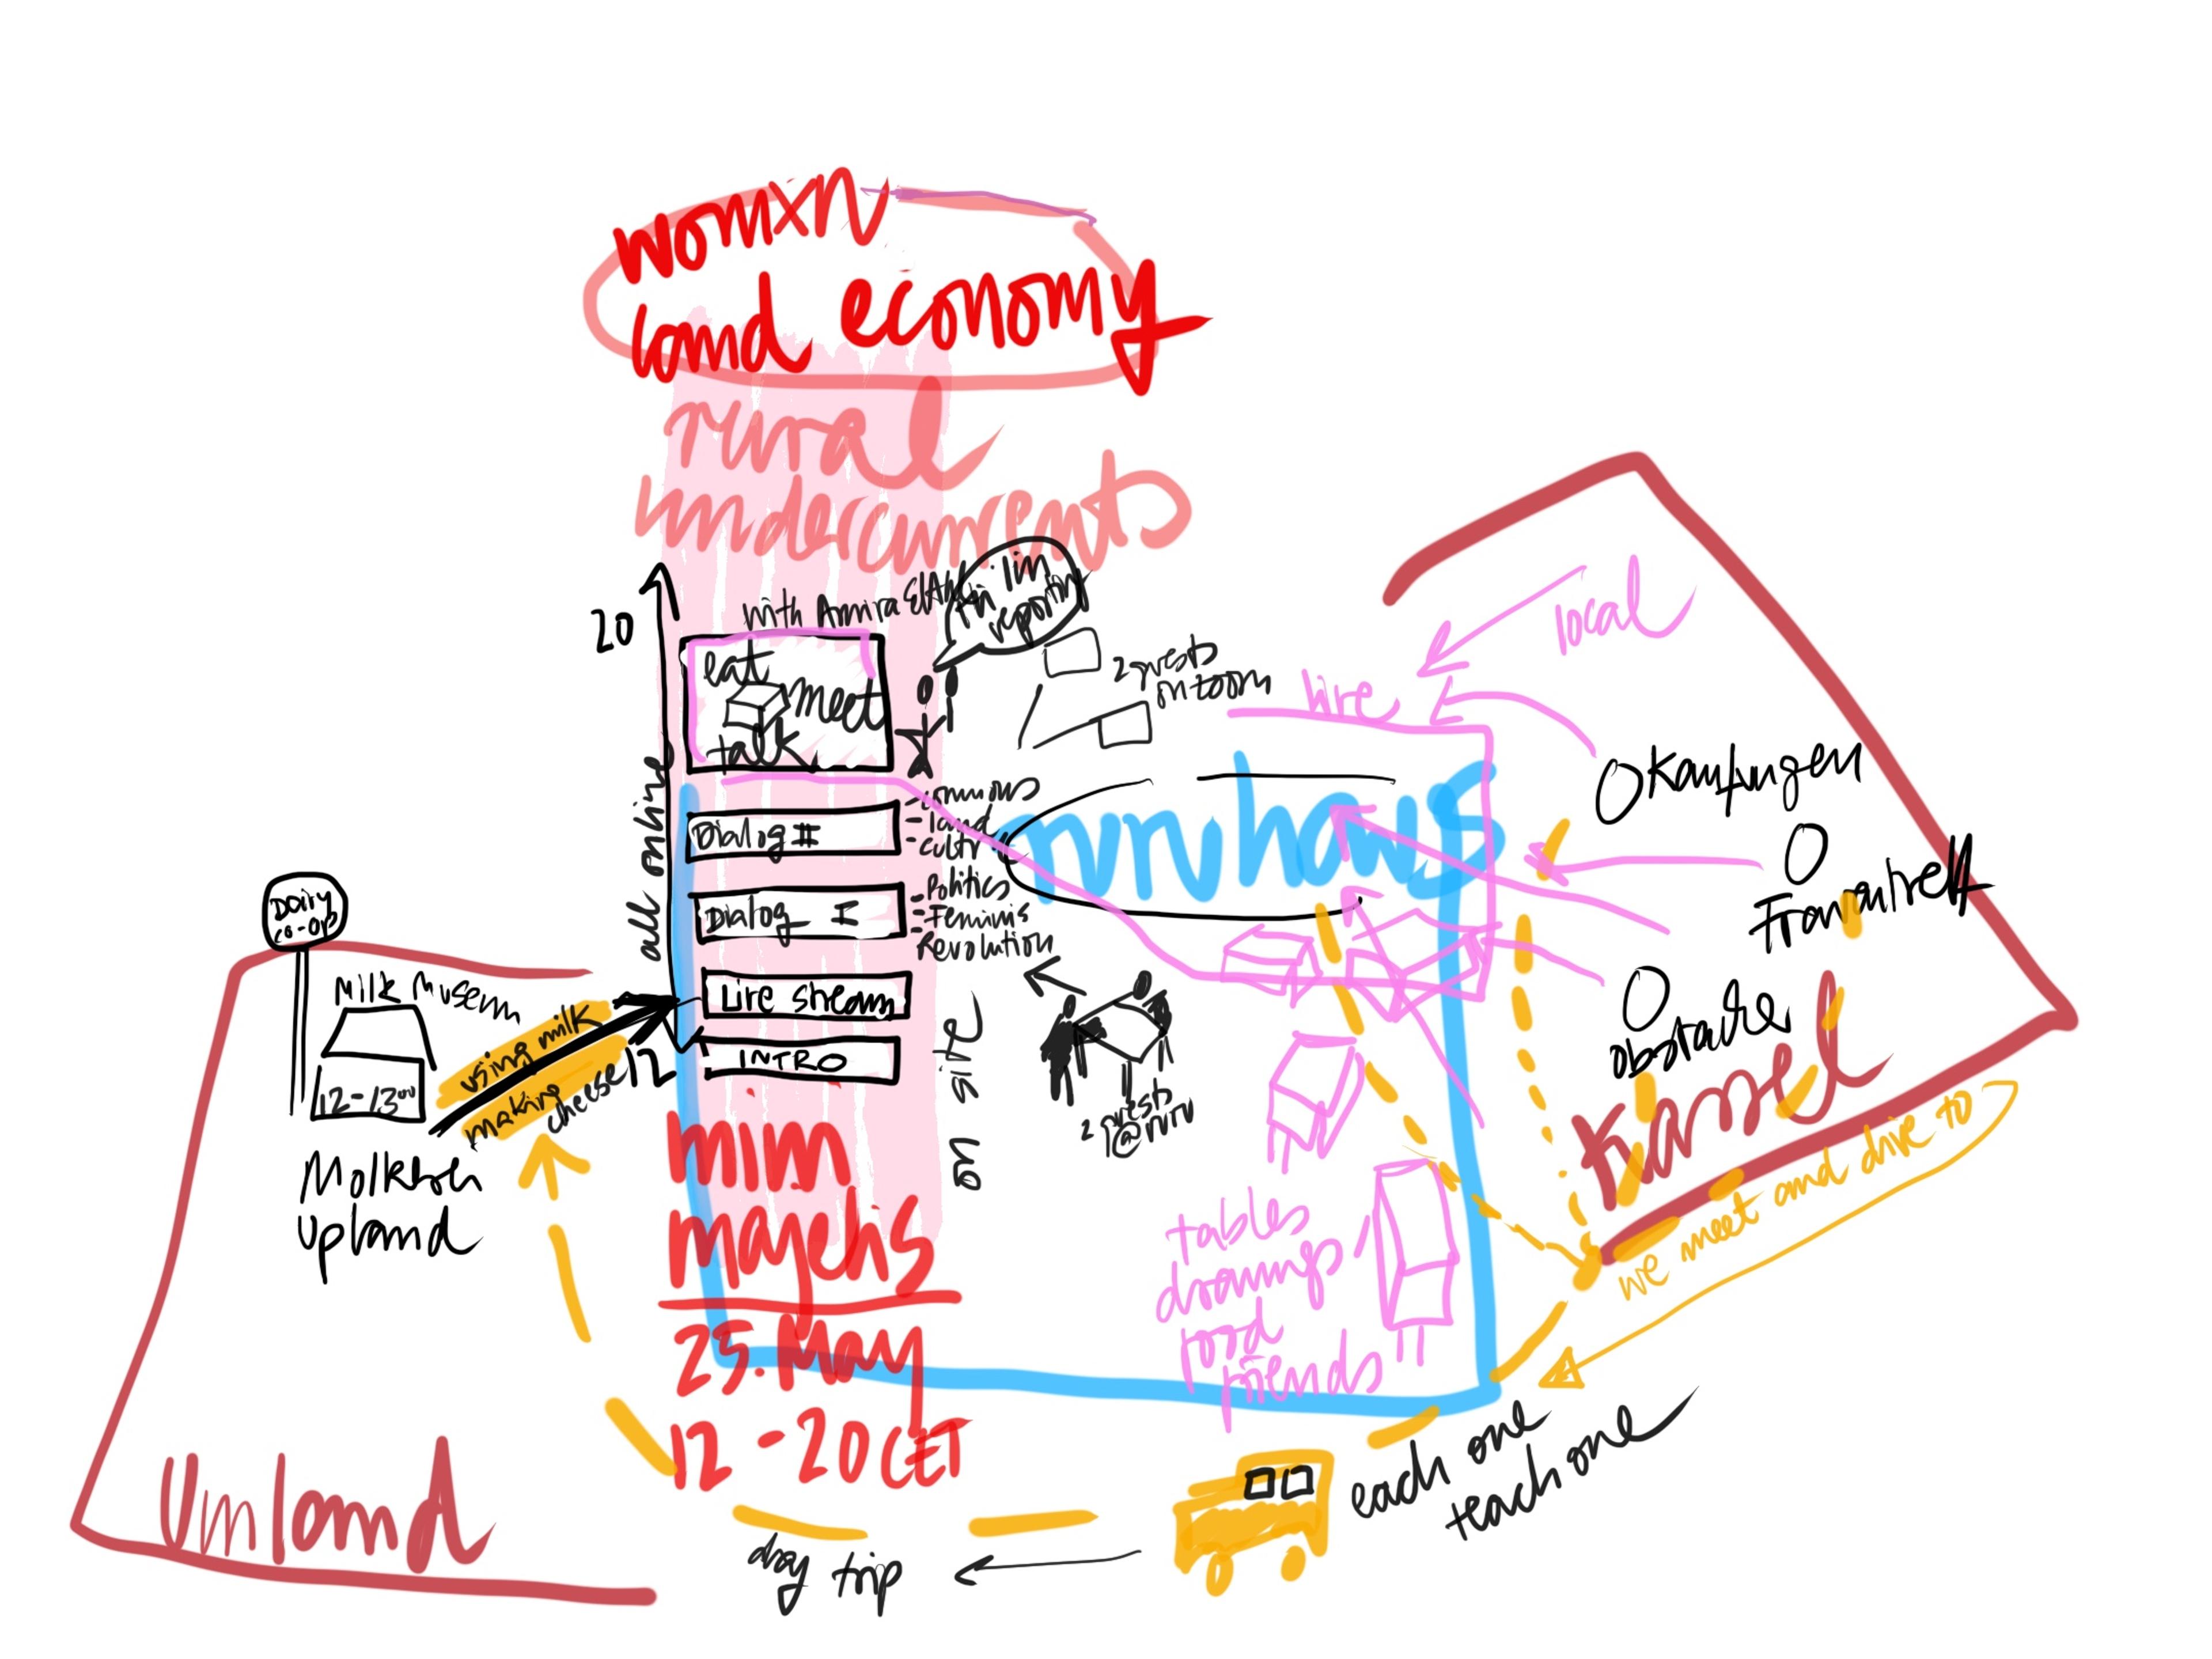 womxn
land economy
rural
undercurrents
with Amira
reporting
20
eat
meet
talk
2 guests
in zoom
all online
Dialog II
- commons
- land
- cultr
Dialog I
: Politics
: Feminis
Revolution
Live stream
INTRO
12
on site
2 guests
@ruru
ruruhaus
hire
local
Kaufungen
Kassel
we meet and drive to
tables
drawings
food
friends
Dairy
co-op
Milk Museum
12-13⁰⁰
using milk
making
cheese
Upland
mim
25. May
12 - 20 CET
each one
teach one
day trip